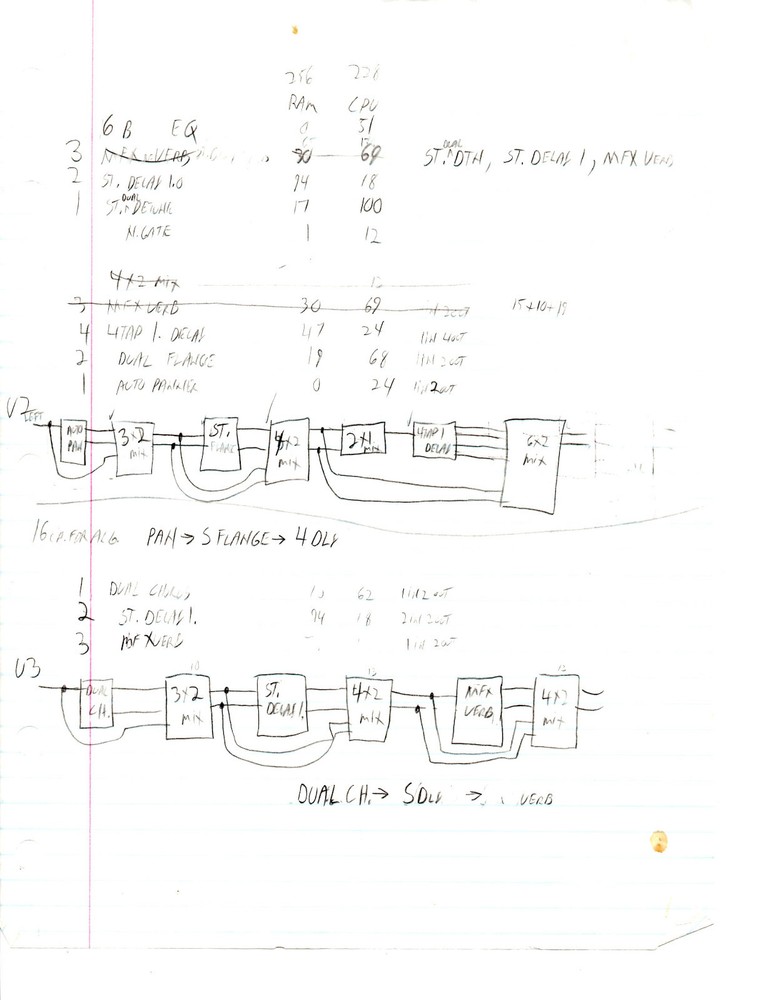 256 228
RAM CPU
6 B EQ 0 51
3 MFX VERB 30 69 ST. DUAL DTN, ST. DELAY 1, MFX VERB
2 ST. DELAY 1.0 94 18
1 ST. DUAL DETUNE 17 100
N.GATE 1 12
4X2 MIX 12
3 MFX VERB 30 69 15+10+19
4 4TAP 1. DELAY 47 24 1IN 4OUT
2 DUAL FLANGE 19 68 1IN 2OUT
1 AUTO PANNER 0 24 1IN 2OUT
V2 LEFT
AUTO PAN
3X2 MIX
ST. FLANG
4X2 MIX
2X1 MIX
4TAP 1 DELAY
6X2 MIX
PAN → S FLANGE → 4 DLY
1 DUAL 62 1IN 2OUT
2 ST. DELAY 1. 94 18 2IN 2OUT
3 MFXVERB 1IN 2OUT
V3
DUAL CH.
10
3X2 MIX
ST. DELAY 1.
12
4X2 MIX
MFX VERB
12
4X2 MIX
DUAL.CH. → SDLY → VERB